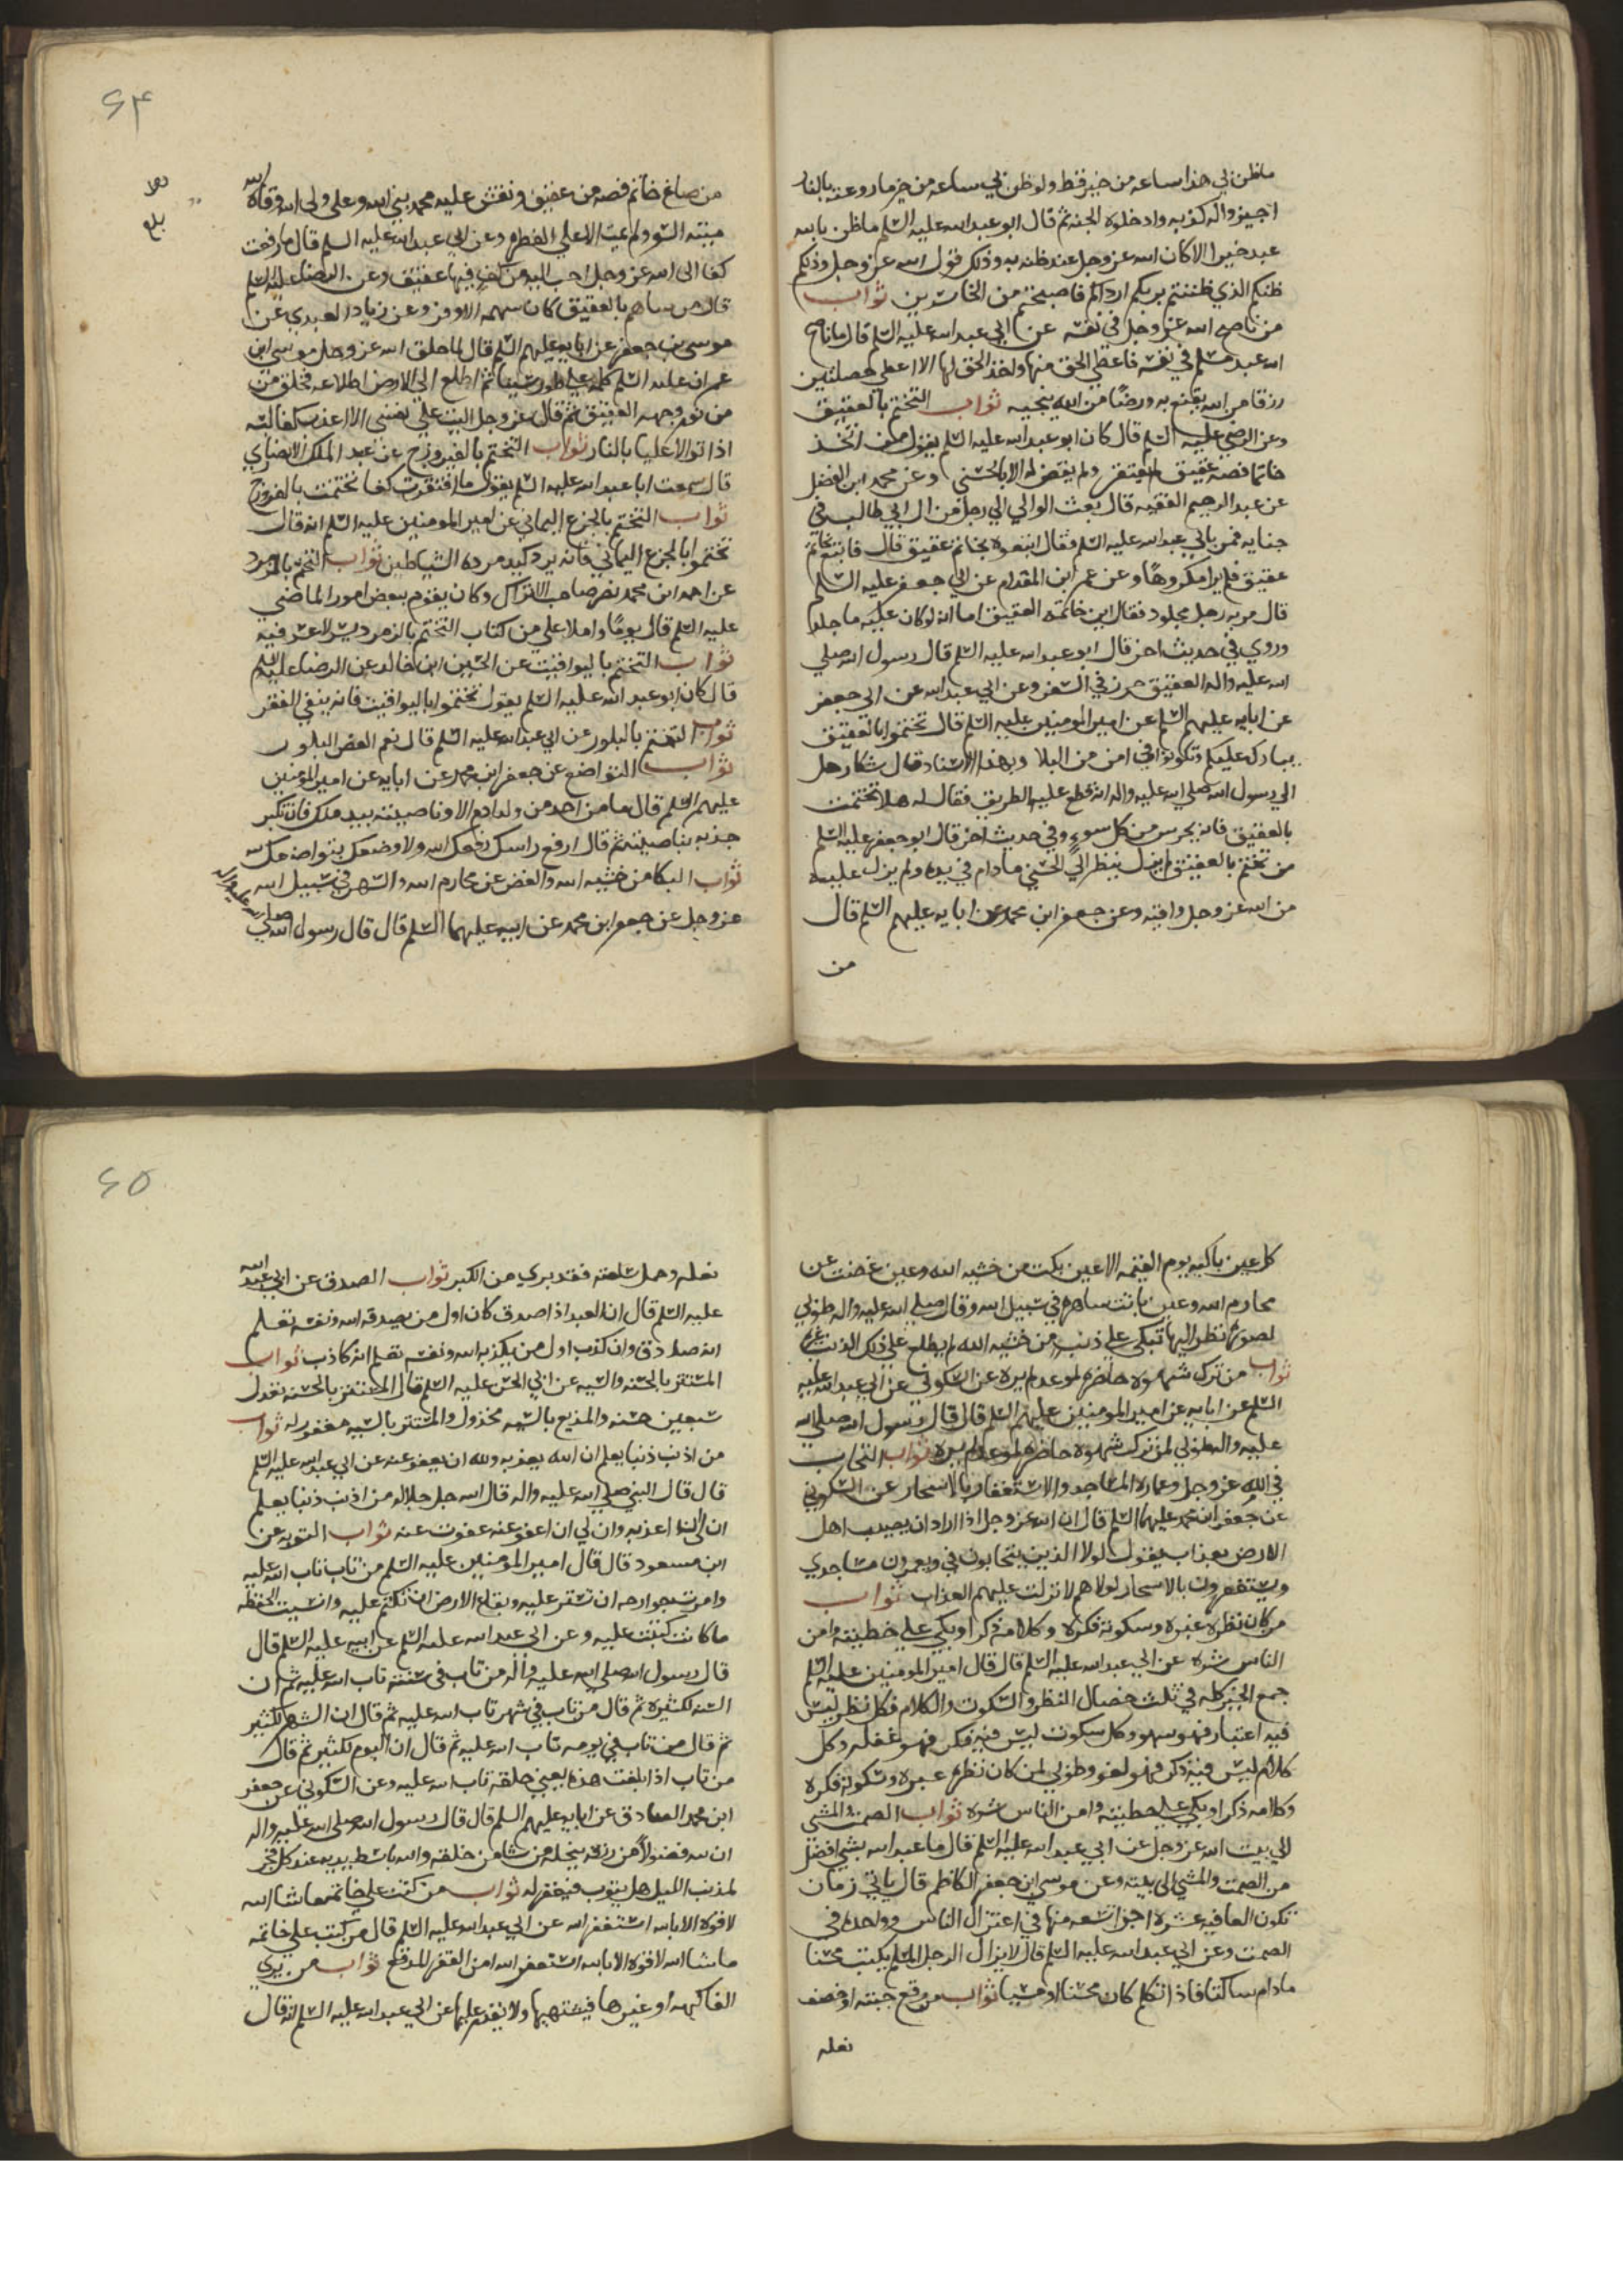 ماظن بي هذا ساعه من خير قط ولو ظن بي ساعه من خير ما روعته بالنار
اجيزوا له كذبه وادخلوه الجنه ثم قال ابو عبد الله عليه السلم ماظن بالله
عبد خيرا الا كان الله عز وجل عند ظنه به وذلك قول الله عز وجل وذلكم
ظنكم الذي ظننتم بربكم ارداكم فاصبحتم من الخاسرين ثواب
من ناصح الله عز وجل في نفسه عن ابي عبد الله عليه السلم قال ما ناصح
الله عبد مسلم في نفسه فاعطي الحق منها واخذ الحق لها الا اعطي خصلتين
رزقا من الله يقنع به ورضًا من الله ينجيه ثواب التختم بالعقيق
وعن الرضي عليه السلم قال كان ابو عبد الله عليه السلم يقول من اتخذ
خاتما فصه عقيق لم يفتقر ولم يقض له الا بالحسني وعن محمد ابن الفضل
عن عبد الرحيم الفقيه قال بعث الوالي الي رجل من ال ابي طالب في
جنايه فمر بابي عبد الله عليه السلم فقال اتبعوه بخاتم عقيق قال فاتبع بخاتم
عقيق فلم ير مكروهًا وعن عمر ابن المقدام عن ابي جعفر عليه السلم
قال مر به رجل مجلود فقال اين خاتمه العقيق اما انه لو كان عليه ما جلد
وروي في حديث اخر قال ابو عبد الله عليه السلم قال رسول الله صلي
الله عليه واله العقيق حرز في السفر وعن ابي عبد الله عن ابي جعفر
عن ابايه عليهم السلم عن امير المومنين عليه السلم قال تختموا بالعقيق
يبارك عليكم وتكونوا في امن من البلا وبهذا الاسناد قال شكا رجل
الي رسول الله صلي الله عليه واله انه قطع عليه الطريق فقال له هلا تختمت
بالعقيق فانه يحرس من كل سوء وفي حديث اخر قال ابو جعفر عليه السلم
من تختم بالعقيق لم يزل ينظر الي الحسني مادام في يده ولم يزل عليه
من الله عز وجل واقيه وعن جعفر ابن محمد عن ابايه عليهم السلم قال
من
٦٤
بلغ
من صاغ خاتم فصه من عقيق ونقش عليه محمد نبي الله وعلي ولي الله وقاه الله
ميتة السو ولم يمت الا علي الفطره وعن ابي عبد الله عليه السلم قال ما رفعت
كف الي الله عز وجل احب اليه من كف فيها عقيق وعن الرضا عليه السلم
قال من ساهم بالعقيق كان سهمه الاوفر وعن زياد العبدي عن
موسي بن جعفر عن ابايه عليهم السلم قال لما خلق الله عز وجل موسي ابن
عمران عليه السلم كلمه علي طور سينا ثم اطلع الي الارض اطلاعه فخلق من
من نور وجهه العقيق ثم قال عز وجل اليت علي نفسي الا اعذب كفا لبسته
اذا توالا عليا بالنار ثواب التختم بالفيروزج عن عبد الملك الانصاري
قال سمعت ابا عبد الله عليه السلم يقول ما افتقرت كف تختمت بالفيروزج
ثواب التختم بالجزع اليماني عن امير المومنين عليه السلم انه قال
تختموا بالجزع اليماني فانه يرد كيد مردة الشياطين ثواب التختم بالزمرد
عن احمد ابن محمد نصر صاحب الانزال وكان يقوم ببعض امور الماضي
عليه السلم قال يومًا واملا علي من كتاب التختم بالزمرد يسر لا عسر فيه
ثواب التختم باليواقيت عن الحسين ابن خالد عن الرضا عليه السلم
قال كان ابو عبد الله عليه السلم يقول تختموا باليواقيت فانه ينفي الفقر
ثواب التختم بالبلور عن ابي عبد الله عليه السلم قال نعم الفص البلور
ثواب التواضع عن جعفر ابن محمد عن ابايه عن امير المومنين
عليهم السلم قال ما من احد من ولد ادم الا وناصيته بيد ملك فان تكبر
جذبه بناصيته ثم قال ارفع راسك رفعك الله ولا وضعك بتواضعك لله
ثواب البكا من خشيه الله والغض عن محارم الله والسهر في سبيل الله
عز وجل عن جعفر ابن محمد عن ابيه عليهما السلم قال قال رسول الله صلي الله عليه واله
كل عين باكيه يوم القيمه الا عين بكت من خشيه الله وعين غضت عن
محارم الله وعين باتت ساهره في سبيل الله وقال صلي الله عليه واله طوبي
لصورة نظر اليها تبكي علي ذنب من خشيه الله لم يطلع علي ذلك الذنب غيره
ثواب من ترك شهوه حاضره لموعد لم يره عن السكوني عن ابي عبد الله عليه
السلم عن ابايه عن امير المومنين عليهم السلم قال قال رسول الله صلي الله
عليه واله طوبي لمن ترك شهوه حاضره لموعد لم يره ثواب التحابب
في الله عز وجل وعمارة المساجد والاستغفار بالاسحار عن السكوني
عن جعفر ابن محمد عليهما السلم قال ان الله عز وجل اذا اراد ان يصيب اهل
الارض بعذاب يقول لولا الذين يتحابون في ويعمرون مساجدي
ويستغفرون بالاسحار لولاهم لانزلت عليهم العذاب ثواب
من كان نظره عبره وسكوته فكره وكلامه ذكرا وبكي علي خطيئته وامن
الناس شره عن ابي عبد الله عليه السلم قال قال امير المومنين عليه السلم
جمع الخير كله في ثلث خصال النظر والسكوت والكلام فكل نظر ليس
فيه اعتبار فهو سهو وكل سكوت ليس فيه فكر فهو غفله وكل
كلام ليس فيه ذكر فهو لغو وطوبي لمن كان نظره عبره وسكوته فكره
وكلامه ذكر وبكي علي خطيته وامن الناس شره ثواب الصمت والمشي
الي بيت الله عز وجل عن ابي عبد الله عليه السلم قال ما عبد الله بشي افضل
من الصمت والمشي الي بيته وعن موسي ابن جعفر الكاظم قال ياتي زمان
تكون العافيه عشره اجزا تسعه منها في اعتزال الناس وواحده في
الصمت وعن ابي عبد الله عليه السلم قال لا يزال الرجل المسلم يكتب محسنا
مادام ساكتا فاذا تكلم كان محسنا او مسيا ثواب من رقع جبته او خصف
نعله
٦٥
نعله وحمل سلعته فقد بري من الكبر ثواب الصدق عن ابي عبد الله
عليه السلم قال ان العبد اذا صدق كان اول من يصدقه الله ونفسه تعلم
انه صادق وان كذب اول من يكذبه الله ونفسه تعلم انه كاذب ثواب
المستتر بالحسنه والسيه عن ابي الحسن عليه السلم قال المستتر بالحسنه تعدل
سبعين حسنه والمذيع بالسيه مخذول والمستتر بالسيه مغفور له ثواب
من اذنب ذنبا يعلم ان الله يعذبه ولله ان يعفو عنه عن ابي عبد الله عليه السلم
قال قال النبي صلي الله عليه واله قال الله جل جلاله من اذنب ذنبا يعلم
ان لي ان اعذبه وان لي ان اعفو عنه عفوت عنه ثواب التوبه عن
ابن مسعود قال قال امير المومنين عليه السلم من تاب تاب الله عليه
وامرت جوارحه ان تستر عليه وبقاع الارض ان تكتم عليه وانسيت الحفظه
ما كانت كتبت عليه وعن ابي عبد الله عليه السلم عن ابيه عليه السلم قال
قال رسول الله صلي الله عليه واله من تاب في سنته تاب الله عليه ثم ان
السنه لكثيره ثم قال من تاب في شهر تاب الله عليه ثم قال ان الشهر لكثير
ثم قال من تاب في يومه تاب الله عليه ثم قال ان اليوم لكثير ثم قال
من تاب اذا بلغت هذه يعني حلقه تاب الله عليه وعن السكوني عن جعفر
ابن محمد الصادق عن ابايه عليهم السلم قال قال رسول الله صلي الله عليه واله
ان لله فضولاً من رزقه ينحله من شا من خلقه والله باسط يديه عند كل فجر
لمذنب الليل هل يتوب فيغفر له ثواب من كتب علي خاتمه ما شا الله
لا قوه الا بالله استغفر الله عن ابي عبد الله عليه السلم قال من كتب علي خاتمه
ما شا الله لا قوه الا بالله استغفر الله امن الفقر المدقع ثواب من يري
الفاكهه او غيرها فيشتهيها ولا يقدر عليها عن ابي عبد الله عليه السلم انه قال